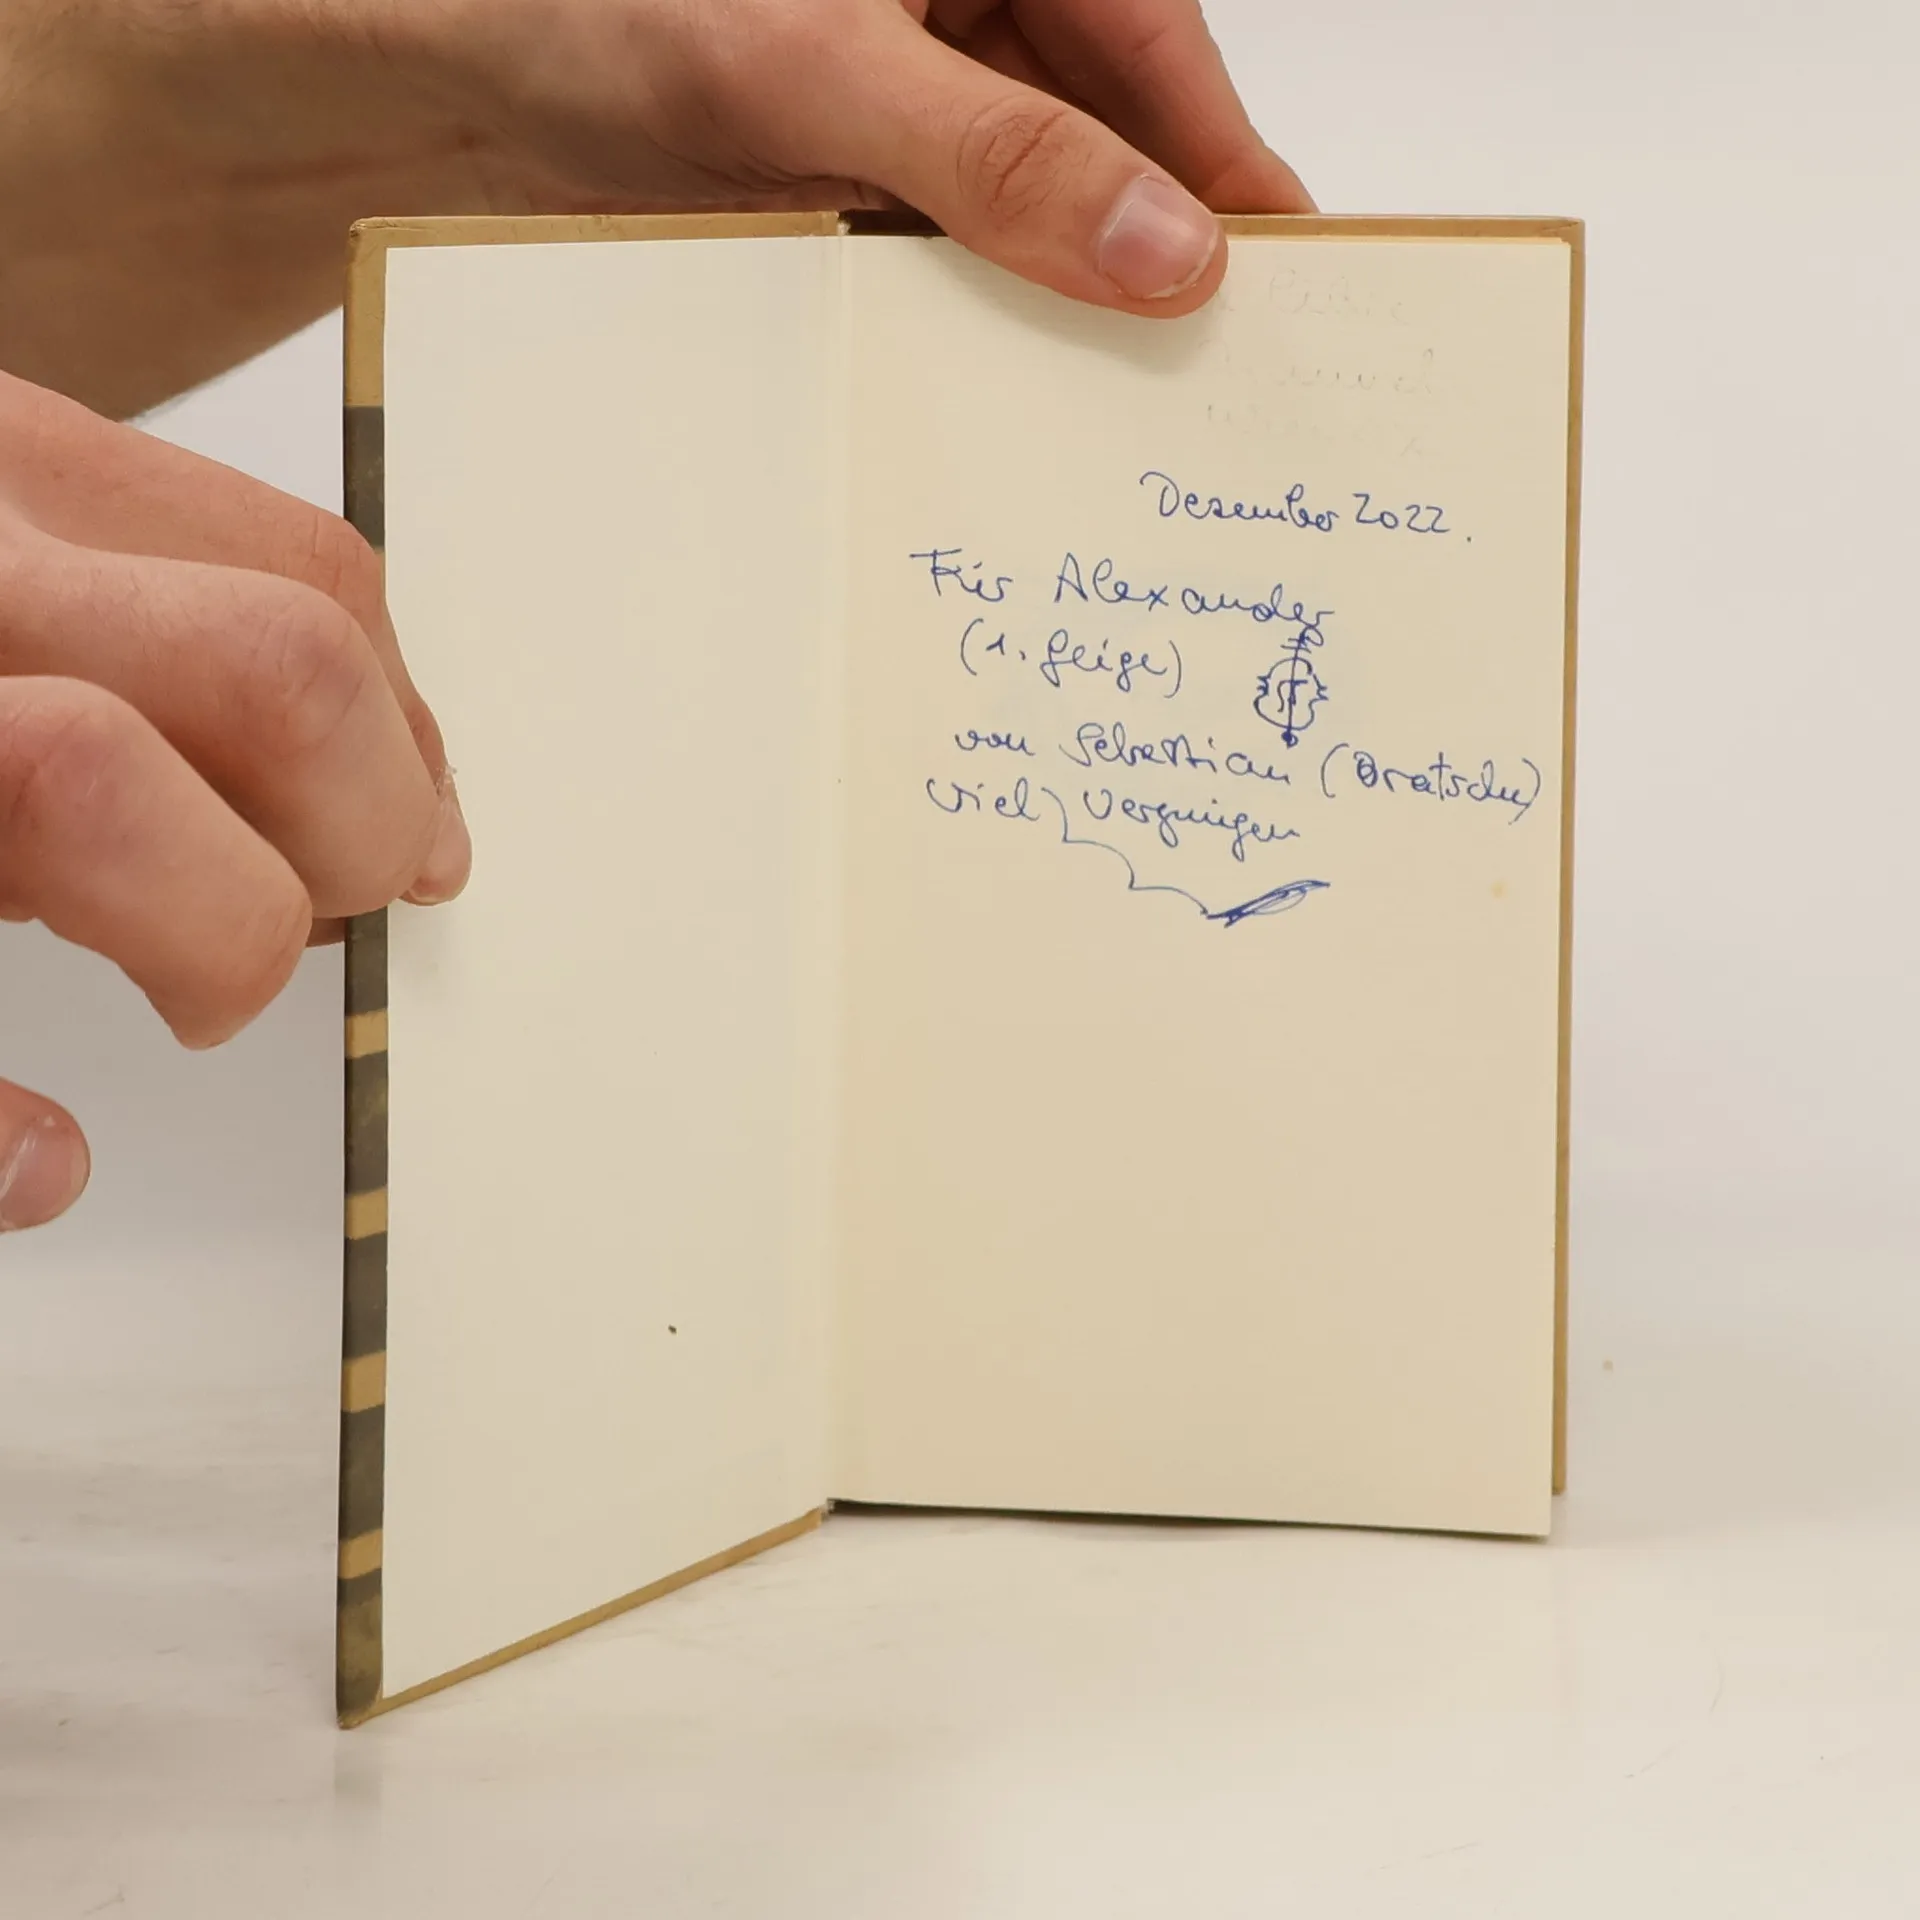 Dezember 2022.
Für Alexander
(1. Geige)
von Sebastian (Bratsche)
viel Vergnügen